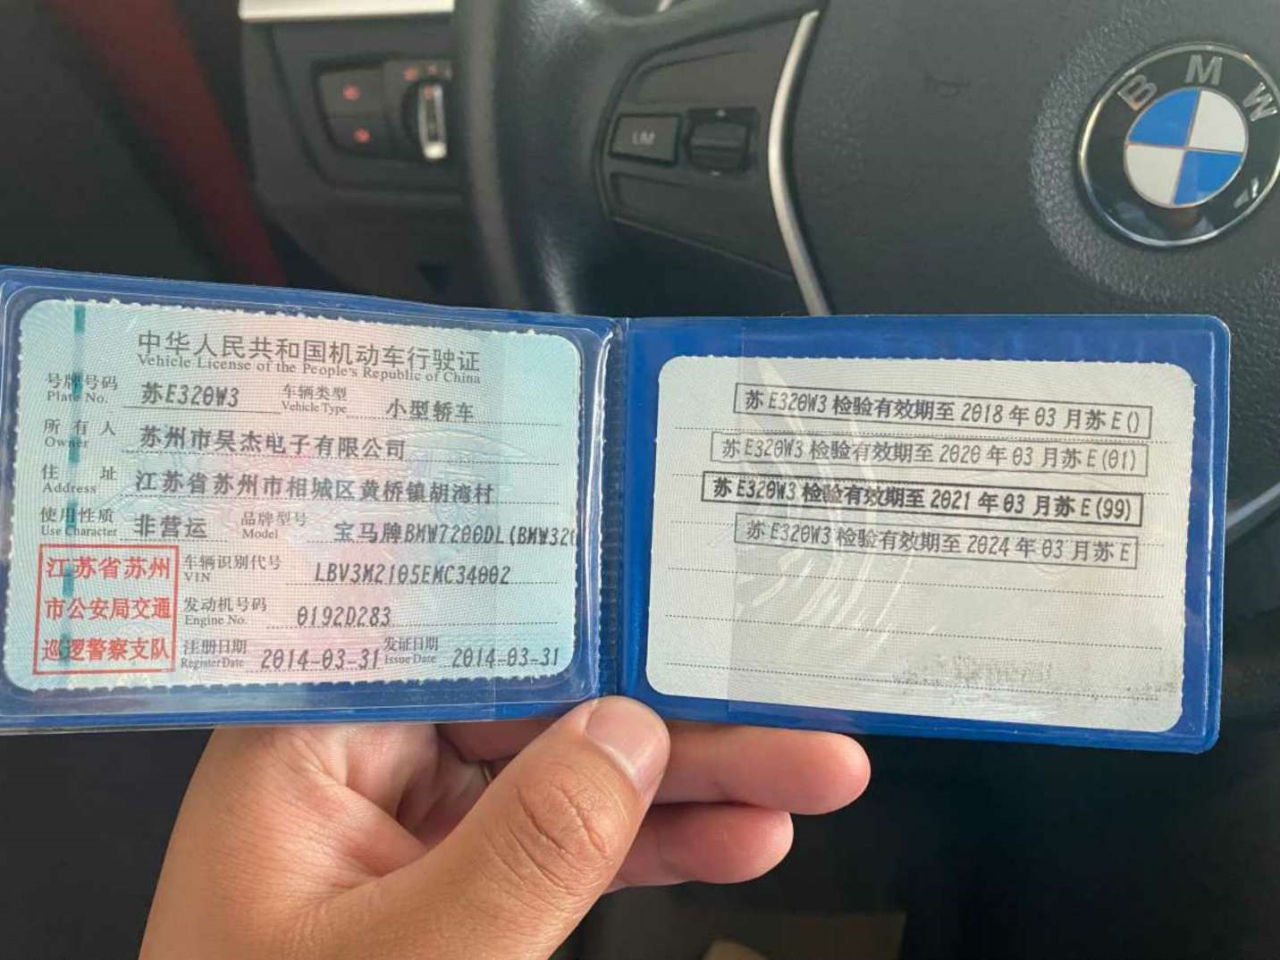 BMW
LIM
中华人民共和国机动车行驶证
Vehicle License of the People's Republic of China
号牌号码 苏E320W3 车辆类型 小型轿车
Plate No. Vehicle Type
所有人 苏州市昊杰电子有限公司
Owner
住址 江苏省苏州市相城区黄桥镇胡湾村
Address
使用性质 非营运 品牌型号 宝马牌BMW7200DL(BMW320
Use Character Model
江苏省苏州
市公安局交通
巡逻警察支队
车辆识别代号 LBV3M2105EMC34002
VIN
发动机号码 0192D283
Engine No.
注册日期 2014-03-31 发证日期 2014-03-31
Register Date Issue Date
苏E320W3检验有效期至2018年03月苏E()
苏E320W3检验有效期至2020年03月苏E(01)
苏E320W3检验有效期至2021年03月苏E(99)
苏E320W3检验有效期至2024年03月苏E